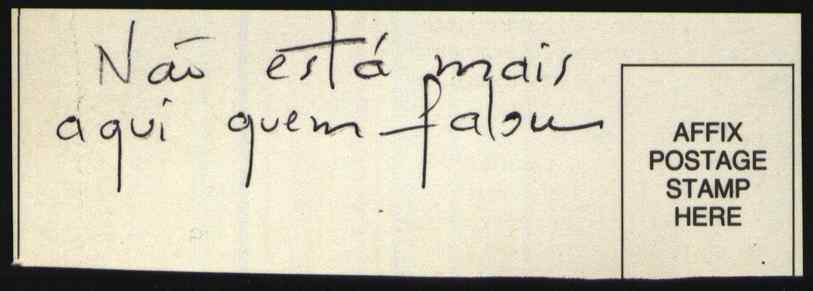 Não está mais
aqui quem falou
AFFIX
POSTAGE
STAMP
HERE